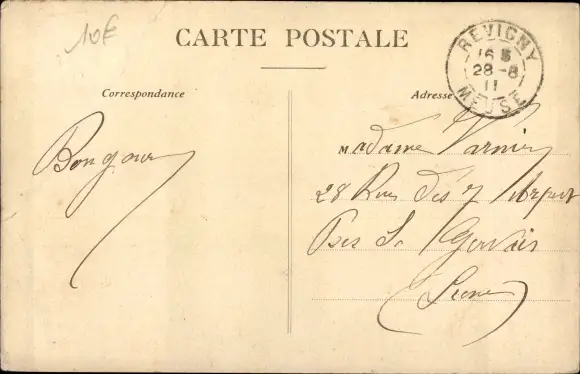 10€
CARTE POSTALE
REVIGNY
16 5
28-8
11
MEUSE
Correspondance
Adresse
Bonjour
Madame Varnier
28 Rue des 7
Près St Gervais
(Seine)